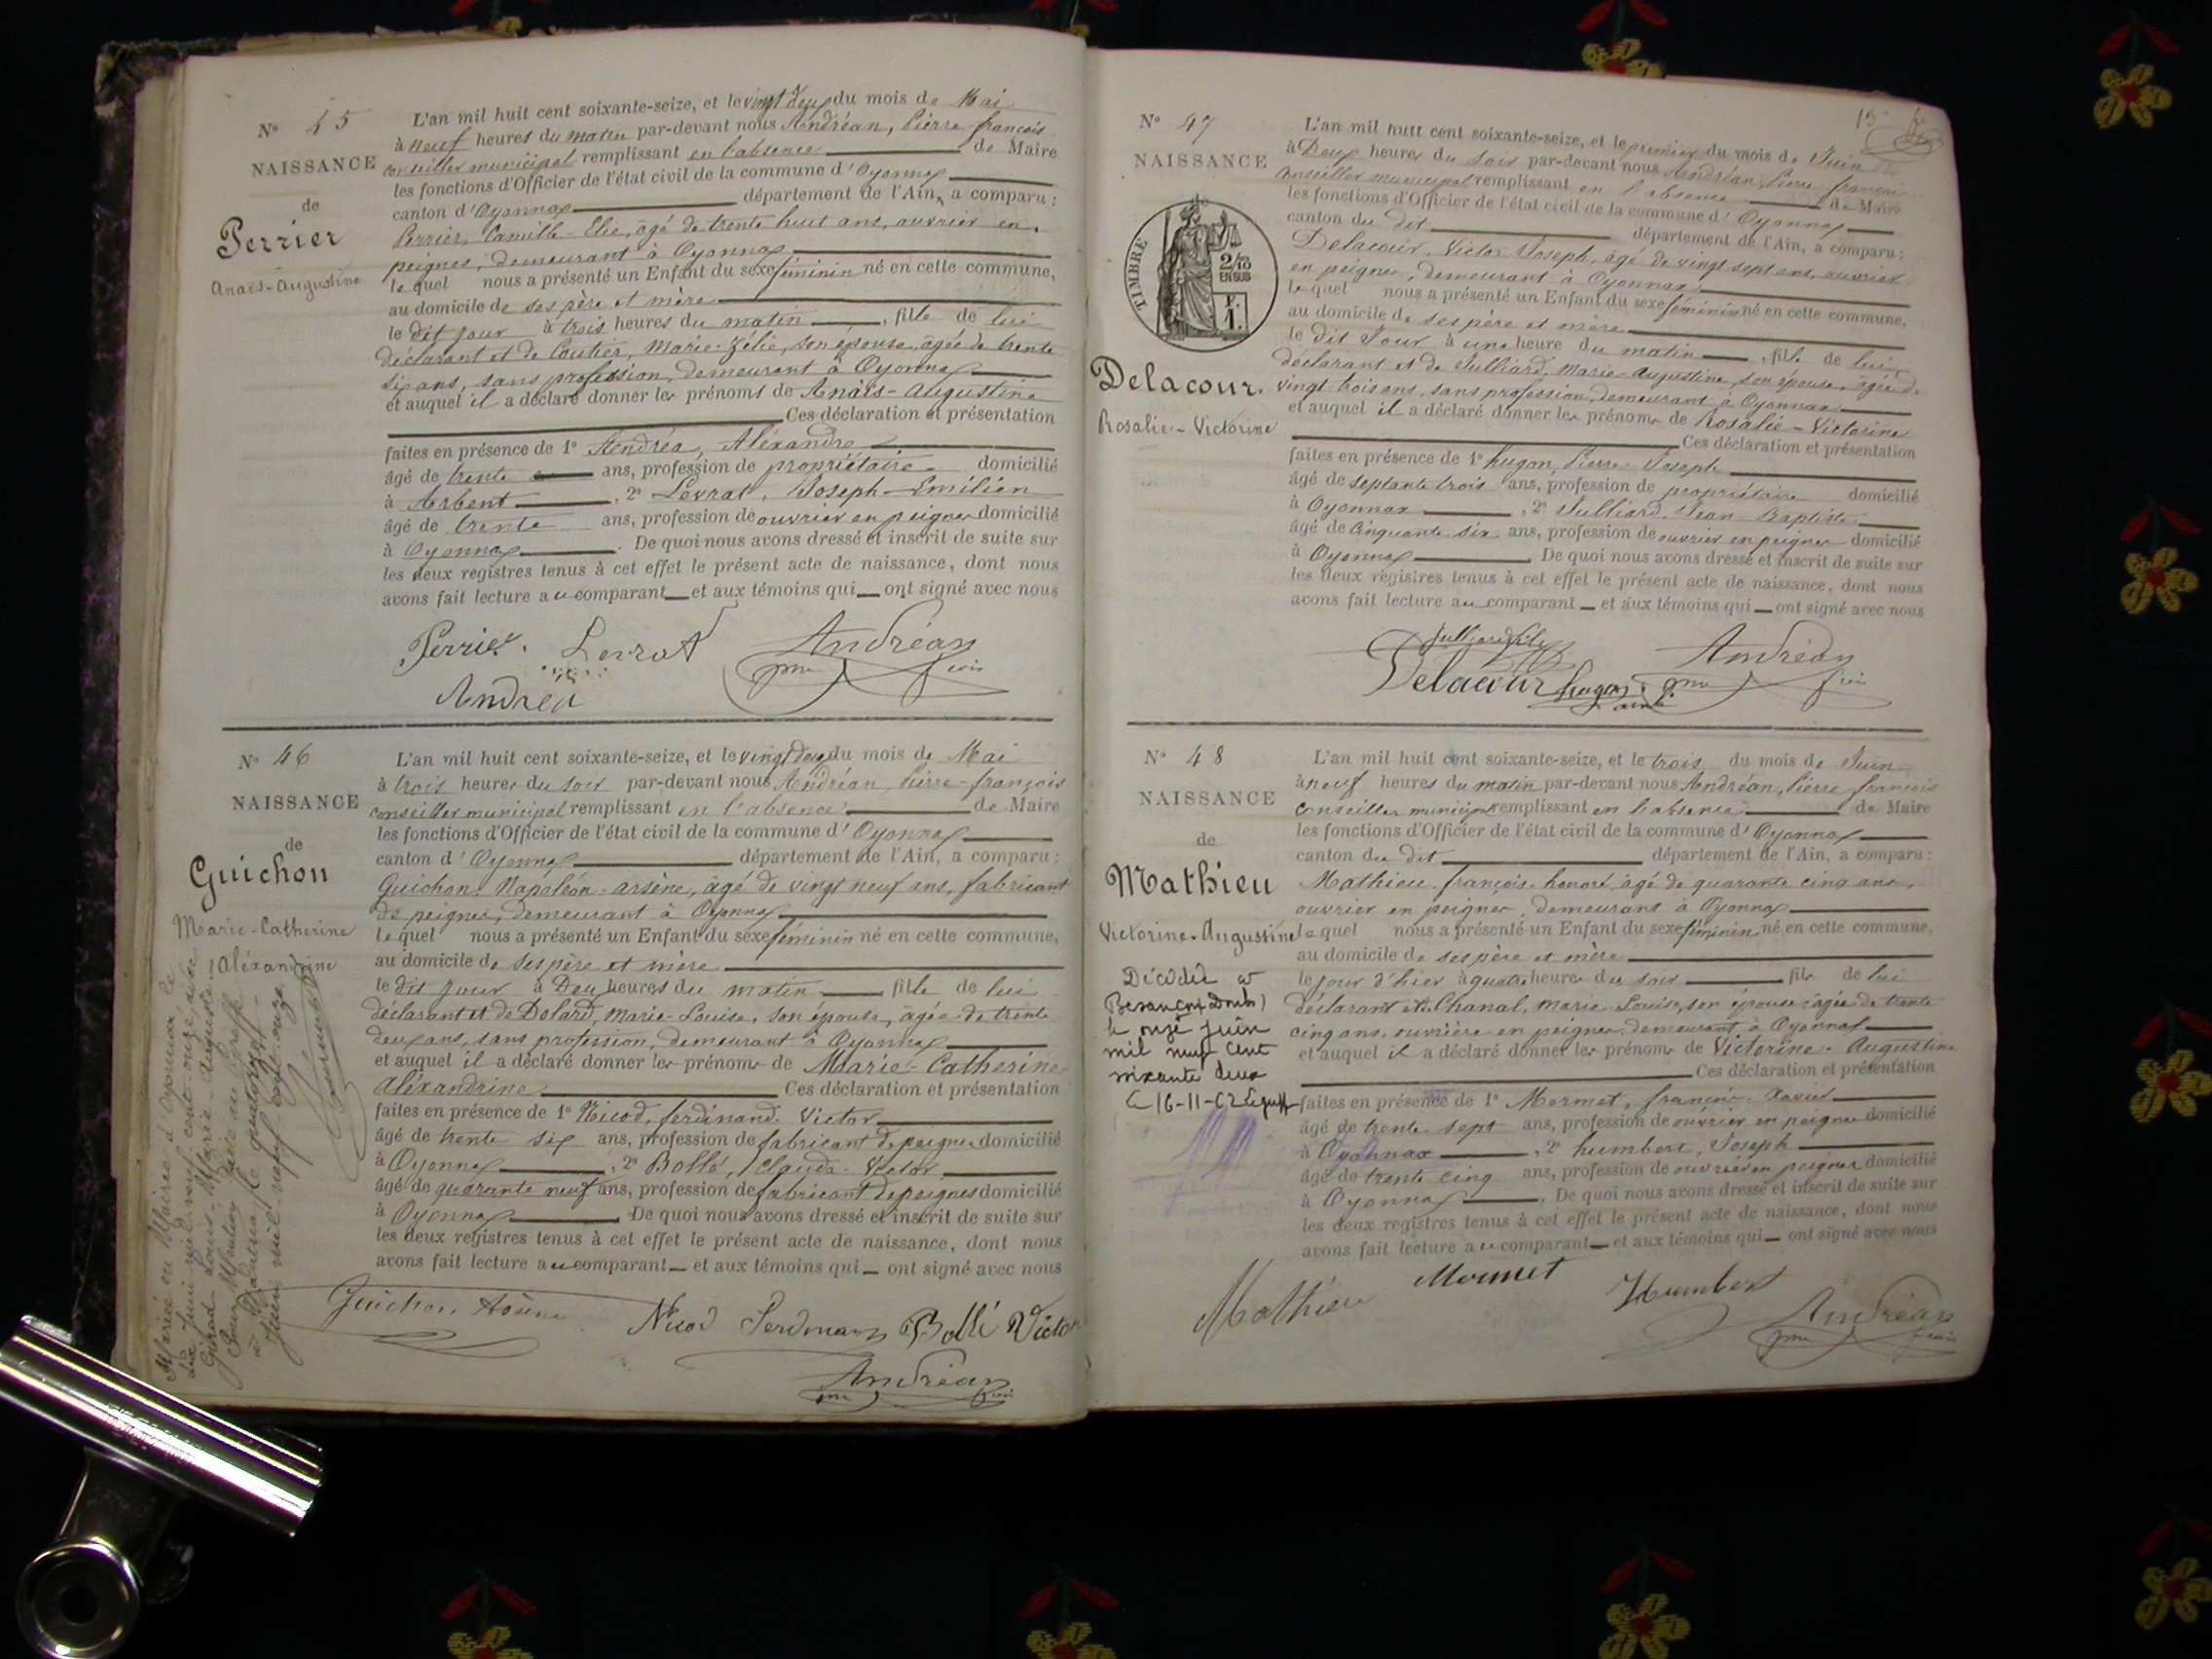 N° 45
NAISSANCE
de
Perrier
Anaïs-Augustine
L'an mil huit cent soixante-seize, et le vingt deux du mois de Mai
à neuf heures du matin par-devant nous Andréan, Pierre-françois
conseiller municipal remplissant en l'absence de Maire
les fonctions d'Officier de l'état civil de la commune d'Oyonnax
canton d'Oyonnax département de l'Ain, a comparu :
Perrier, Camille-Elie, âgé de trente huit ans, ouvrier en
peignes, demeurant à Oyonnax
lequel nous a présenté un Enfant du sexe féminin né en cette commune,
au domicile de ses père et mère
le dit jour à trois heures du matin, fille de lui
déclarant et de Coutier, Marie-Zélie, son épouse, âgée de trente
six ans, sans profession, demeurant à Oyonnax
et auquel il a déclaré donner les prénoms de Anaïs-Augustine
Ces déclaration et présentation
faites en présence de 1° Andréa, Aléxandre
âgé de trente ans, profession de propriétaire domicilié
à Arbent, 2° Levrat, Joseph-Emilien
âgé de trente ans, profession de ouvrier en peignes domicilié
à Oyonnax. De quoi nous avons dressé et inscrit de suite sur
les deux registres tenus à cet effet le présent acte de naissance, dont nous
avons fait lecture au comparant et aux témoins qui ont signé avec nous
Perrier. Levrat Andréan
Andréa
N° 46
NAISSANCE
de
Guichon
Marie-Catherine
Aléxandrine
L'an mil huit cent soixante-seize, et le vingt deux du mois de Mai
à trois heures du soir par-devant nous Andréan, Pierre-françois
conseiller municipal remplissant en l'absence de Maire
les fonctions d'Officier de l'état civil de la commune d'Oyonnax
canton d'Oyonnax département de l'Ain, a comparu :
Guichon, Napoléon-arsène, âgé de vingt neuf ans, fabricant
de peignes, demeurant à Oyonnax
lequel nous a présenté un Enfant du sexe féminin né en cette commune,
au domicile de ses père et mère
le dit jour à Deux heures du matin fille de lui
déclarant et de Dolard, Marie-Louise, son épouse, âgée de trente
deux ans, sans profession, demeurant à Oyonnax
et auquel il a déclaré donner les prénoms de Marie-Catherine-
Aléxandrine Ces déclaration et présentation
faites en présence de 1° Nicod, ferdinand-Victor
âgé de trente six ans, profession de fabricant de peignes domicilié
à Oyonnax, 2° Bollé, Claude-Victor
âgé de quarante neuf ans, profession de fabricant de peignes domicilié
à Oyonnax De quoi nous avons dressé et inscrit de suite sur
les deux registres tenus à cet effet le présent acte de naissance, dont nous
avons fait lecture au comparant et aux témoins qui ont signé avec nous
Mariée en Mairie d'Oyonnax le
dix Juin mil neuf cent onze, avec
Girod Louis-Marie-Auguste
Guichon Nicod Ferdinand Bollé Victor
Andréan
N° 47
NAISSANCE
de
TIMBRE
2/10
EN SUS
Delacour.
Rosalie-Victorine
15
L'an mil huit cent soixante-seize, et le premier du mois de Juin
à Deux heures du soir par-devant nous Andréan, Pierre françois
conseiller municipal remplissant en l'absence de Maire
les fonctions d'Officier de l'état civil de la commune d'Oyonnax
canton du dit département de l'Ain, a comparu :
Delacour, Victor Joseph, âgé de vingt sept ans, ouvrier
en peignes, demeurant à Oyonnax
lequel nous a présenté un Enfant du sexe féminin né en cette commune,
au domicile de ses père et mère
le dit Jour à une heure du matin, fille de lui,
déclarant et de Julliard, Marie-Augustine, son épouse, âgée de
vingt trois ans, sans profession, demeurant à Oyonnax
et auquel il a déclaré donner les prénoms de Rosalie-Victorine
Ces déclaration et présentation
faites en présence de 1° hugon, Pierre-Joseph
âgé de septante trois ans, profession de propriétaire domicilié
à Oyonnax, 2° Julliard, Jean-Baptiste
âgé de Cinquante six ans, profession de ouvrier en peignes domicilié
à Oyonnax De quoi nous avons dressé et inscrit de suite sur
les deux registres tenus à cet effet le présent acte de naissance, dont nous
avons fait lecture au comparant et aux témoins qui ont signé avec nous
Delacour hugon Andréan
N° 48
NAISSANCE
de
Mathieu
Victorine-Augustine
Décédée à
Besançon (Doubs)
le onze juin
mil neuf cent
soixante deux
Le 16-11-62
L'an mil huit cent soixante-seize, et le trois du mois de Juin
à neuf heures du matin par-devant nous Andréan, Pierre françois
Conseiller municipal remplissant en l'absence de Maire
les fonctions d'Officier de l'état civil de la commune d'Oyonnax
canton du dit département de l'Ain, a comparu :
Mathieu, françois-honoré, âgé de quarante cinq ans,
ouvrier en peignes, demeurant à Oyonnax
lequel nous a présenté un Enfant du sexe féminin né en cette commune,
au domicile de ses père et mère
le jour d'hier à quatre heures du soir fille de lui
déclarant et de Chanal, Marie-Louise, son épouse âgée de trente
cinq ans, ouvrière en peignes, demeurant à Oyonnax
et auquel il a déclaré donner les prénoms de Victorine-Augustine
Ces déclaration et présentation
faites en présence de 1° Mermet, françois-Xavier
âgé de trente sept ans, profession de ouvrier en peignes domicilié
à Oyonnax, 2° humbert, Joseph
âgé de trente cinq ans, profession de ouvrier en peignes domicilié
à Oyonnax. De quoi nous avons dressé et inscrit de suite sur
les deux registres tenus à cet effet le présent acte de naissance, dont nous
avons fait lecture au comparant et aux témoins qui ont signé avec nous
Mathieu Mermet Humbert
Andréan